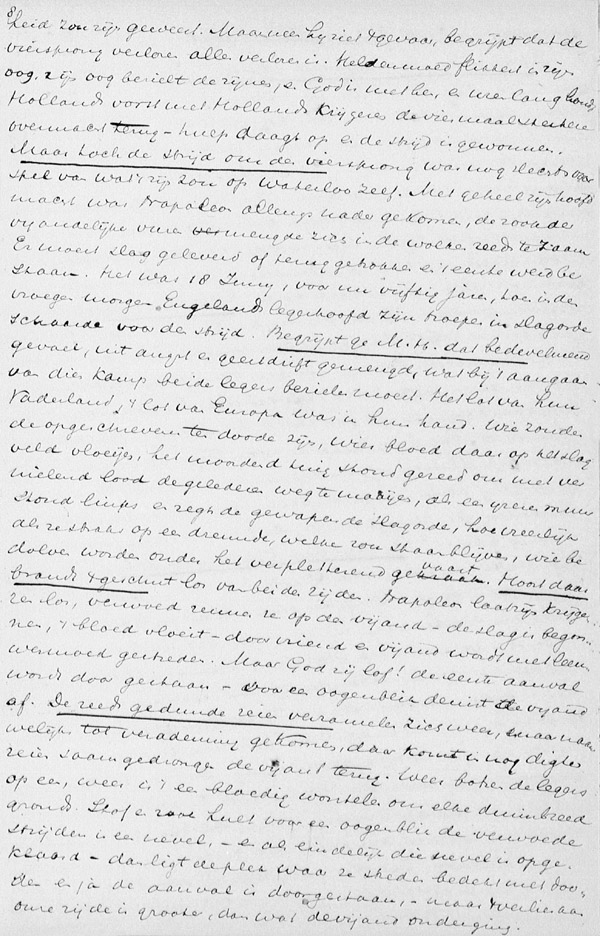 8
heid zou zijn geweest. Maar neen hy ziet 't gevaar, begrijpt dat de
viersprong verloren alles verloren is. Heldenmoed flikkert in zijn
oog, zijn oog bezielt de zijnen, en God is met hen en uren lang houdt
Hollands vorst met Hollands krijgeren de viermaal sterkere
overmacht terug – hulp daagt op en de strijd is gewonnen.
Maar toch de strijd om den viersprong was nog slechts voor
spel van wat 't zijn zou op Waterloo zelf. Met geheel zijn hoofd
macht was Napoleon allengs nader gekomen, de rook der
vijandelijke vuren mengde zich in de wolken reeds te zaam
Er moest slag geleverd of terug getrokken en 't eerste werd be
staan. Het was 18 Juny, voor nu vijftig jaren, toen in den
vroegen morgen Engelands legerhoofd zijn troepen in slagorde
schaarde voor den strijd. Begrijpt ge M.H. dat bedwelmend
gevoel, uit angst en geestdrift gemengd, wat bij 't aangaan
van dien kamp beide legers bezielen moest. Het lot van hun
Vaderland, 't lot van Europa was in hun hand. Wie zouden
de opgeschrevenen ten doode zijn, wier bloed daar op het slag
veld vloeijen, het moordend tuig stond gereed om met ver
nielend lood de gelederen weg te maaijen, als een yzeren muur
stond links en regts de gewapende slagorde, hoe vreeselijk
als ze straks op een dreunde, welke zou staan blijven, wie be
dolven worden onder het verpletterend gevaart. Hoort daar
brandt 't geschut los van beide zijden. Napoleon laat zijn krijgen
ren los, verwoed rennen ze op den vijand – de slag is begon
nen, 't bloed vloeit – door vriend en vijand wordt met leeu
wenmoed gestreden. Maar God zij lof! de eerste aanval
wordt door gestaan – voor een oogenblik deinst de vyand
af. De reeds gedunde reien verzamelen zich weer, maar naau
welijks tot verademing gekomen, daar komt in nog digter
reien saamgedrongen de vijand terug. Weer botsen de legers
op een, weer is 't een bloedig worstelen om elke duimbreed
gronds. Stof en rook hult voor een oogenblik de verwoede
strijders in een nevel, – en als eindelijk die nevel is opge
klaard – dan ligt de plek waar ze streden bedekt met doo-
den en ja de aanval is doorgestaan, – maar 't verlies aan
onze zijde is grooter, dan wat de vijand onderging.